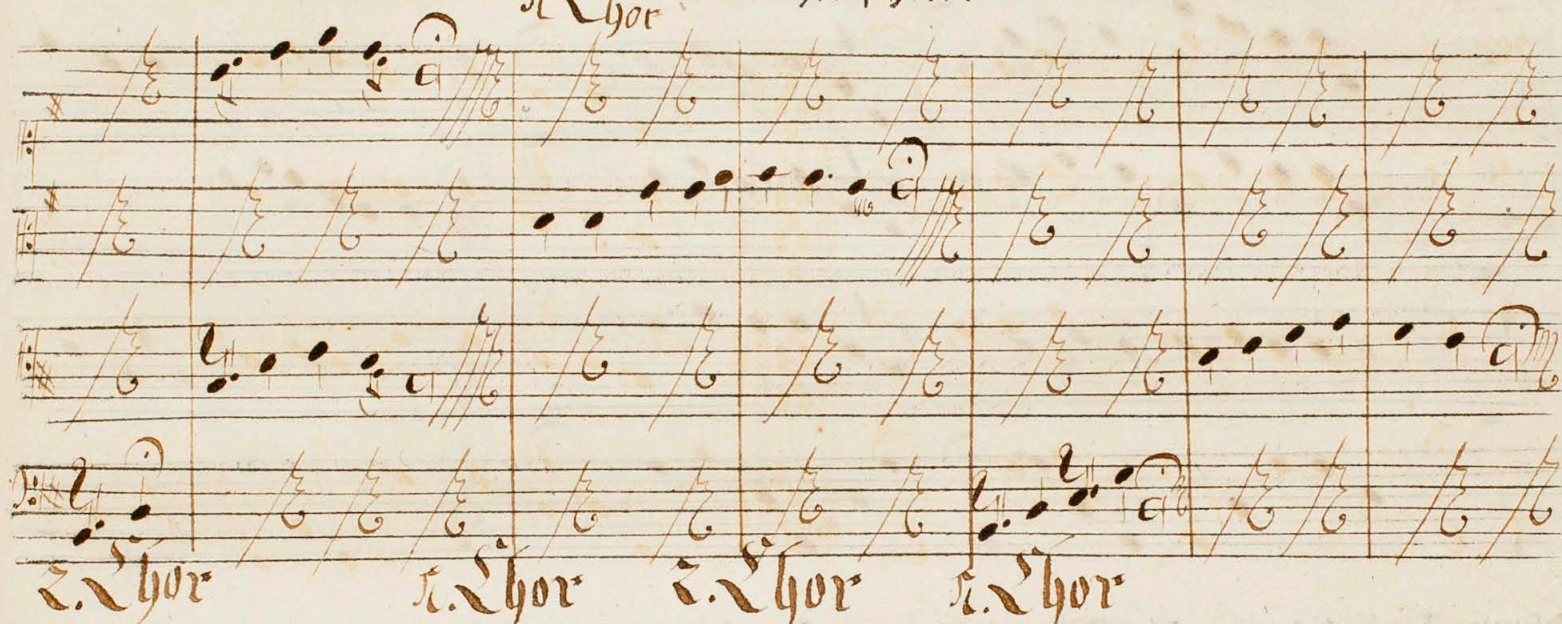 1 Chor
2. Chor 1. Chor 2. Chor 1. Chor